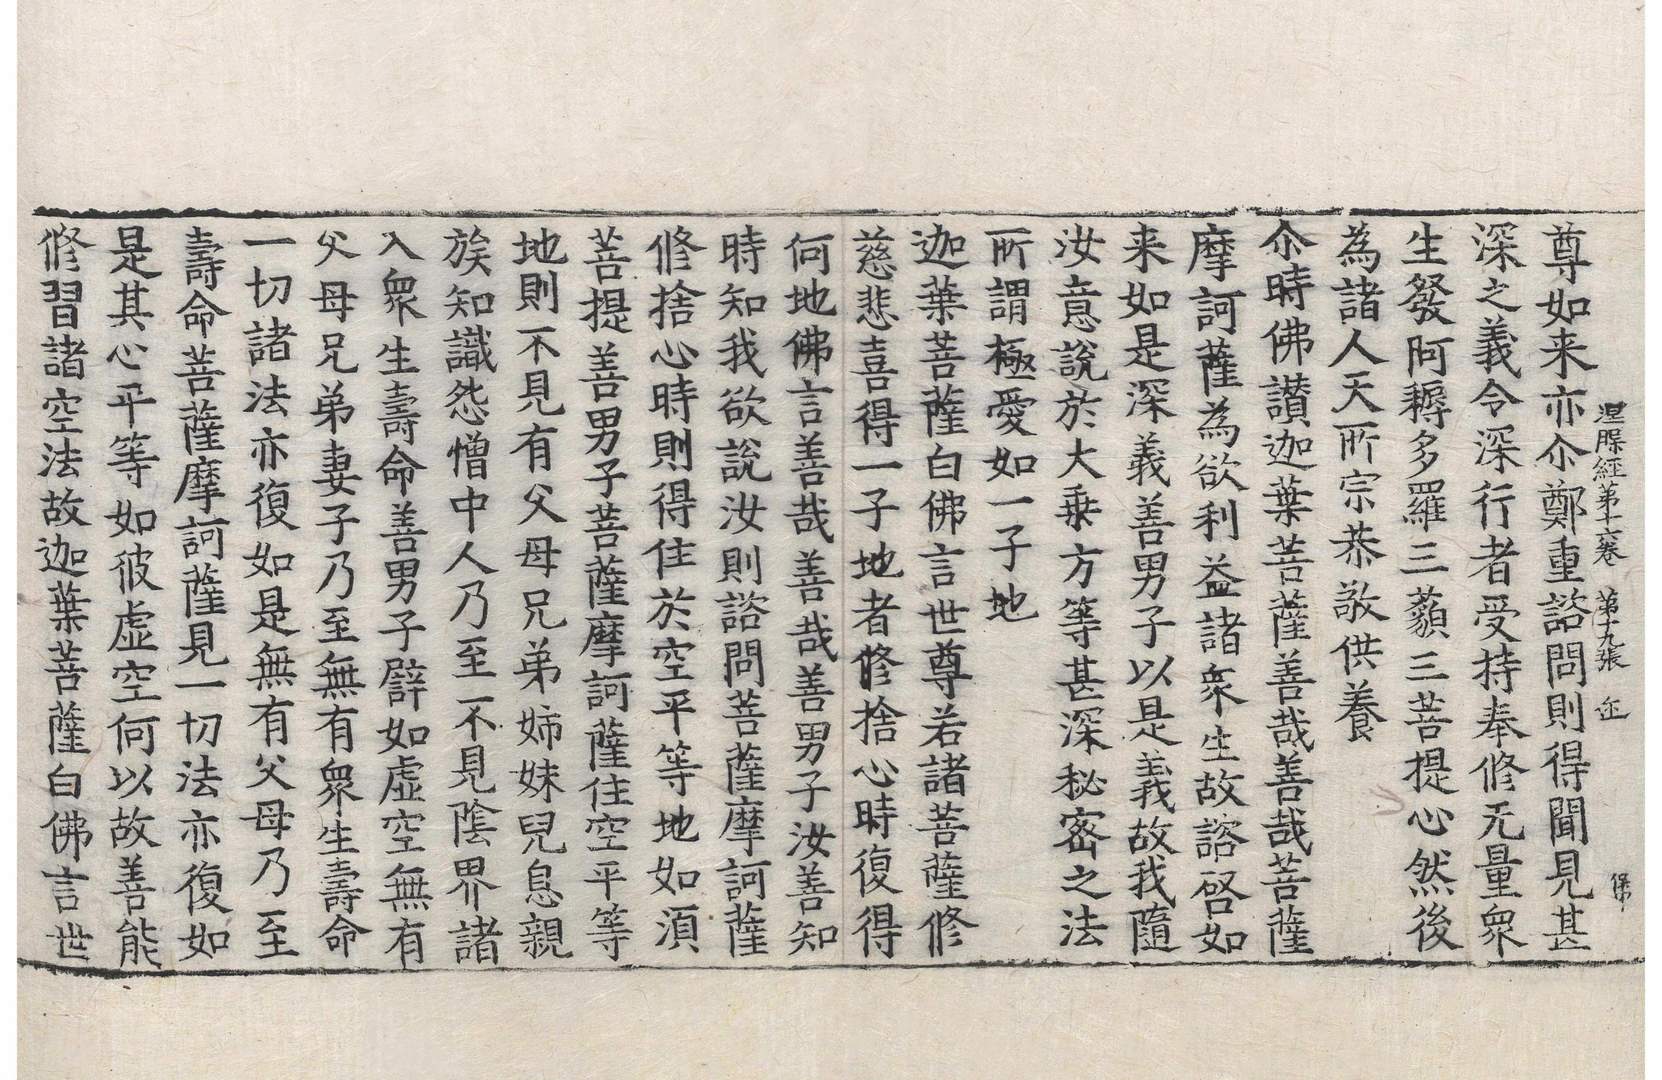 涅槃經第十六卷　第十九張　㱏
尊如来亦尒鄭重諮問則得聞見甚
深之義令深行者受持奉修无量衆
生發阿耨多羅三藐三菩提心然後
為諸人天所宗恭敬供養
尒時佛讃迦葉菩薩善哉善哉菩薩
摩訶薩為欲利益諸衆生故諮啓如
来如是深義善男子以是義故我隨
汝意說於大乗方等甚深秘密之法
所謂極愛如一子地
迦葉菩薩白佛言世尊若諸菩薩修
慈悲喜得一子地者修捨心時復得
何地佛言善哉善哉善男子汝善知
時知我欲說汝則諮問菩薩摩訶薩
修捨心時則得住於空平等地如須
菩提善男子菩薩摩訶薩住空平等
地則不見有父母兄弟姉妹兒息親
族知識怨憎中人乃至不見陰界諸
入衆生壽命善男子譬如虛空無有
父母兄弟妻子乃至無有衆生壽命
一切諸法亦復如是無有父母乃至
壽命菩薩摩訶薩見一切法亦復如
是其心平等如彼虛空何以故善能
修習諸空法故迦葉菩薩白佛言世